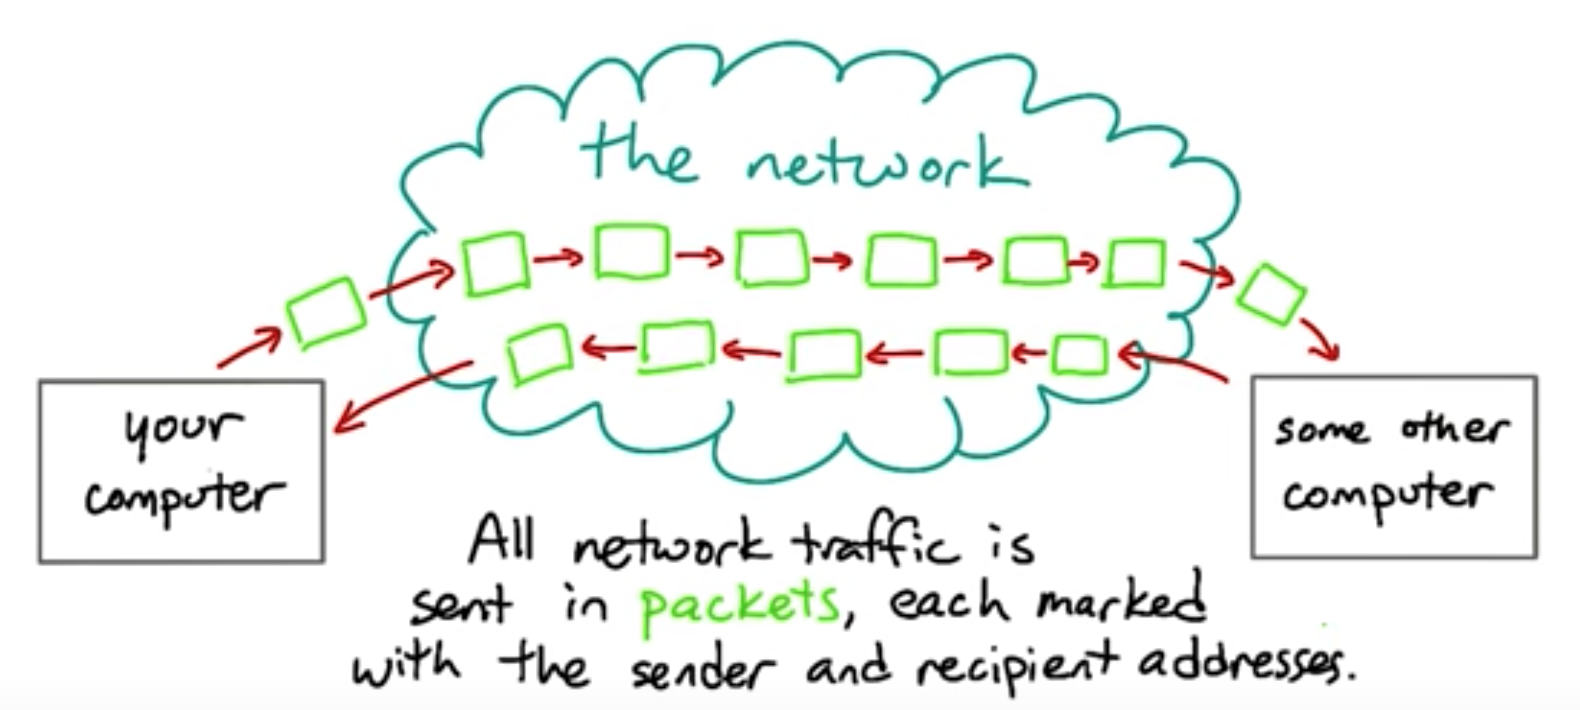 the network
your
computer
some other
computer
All network traffic is
sent in packets, each marked
with the sender and recipient addresses.